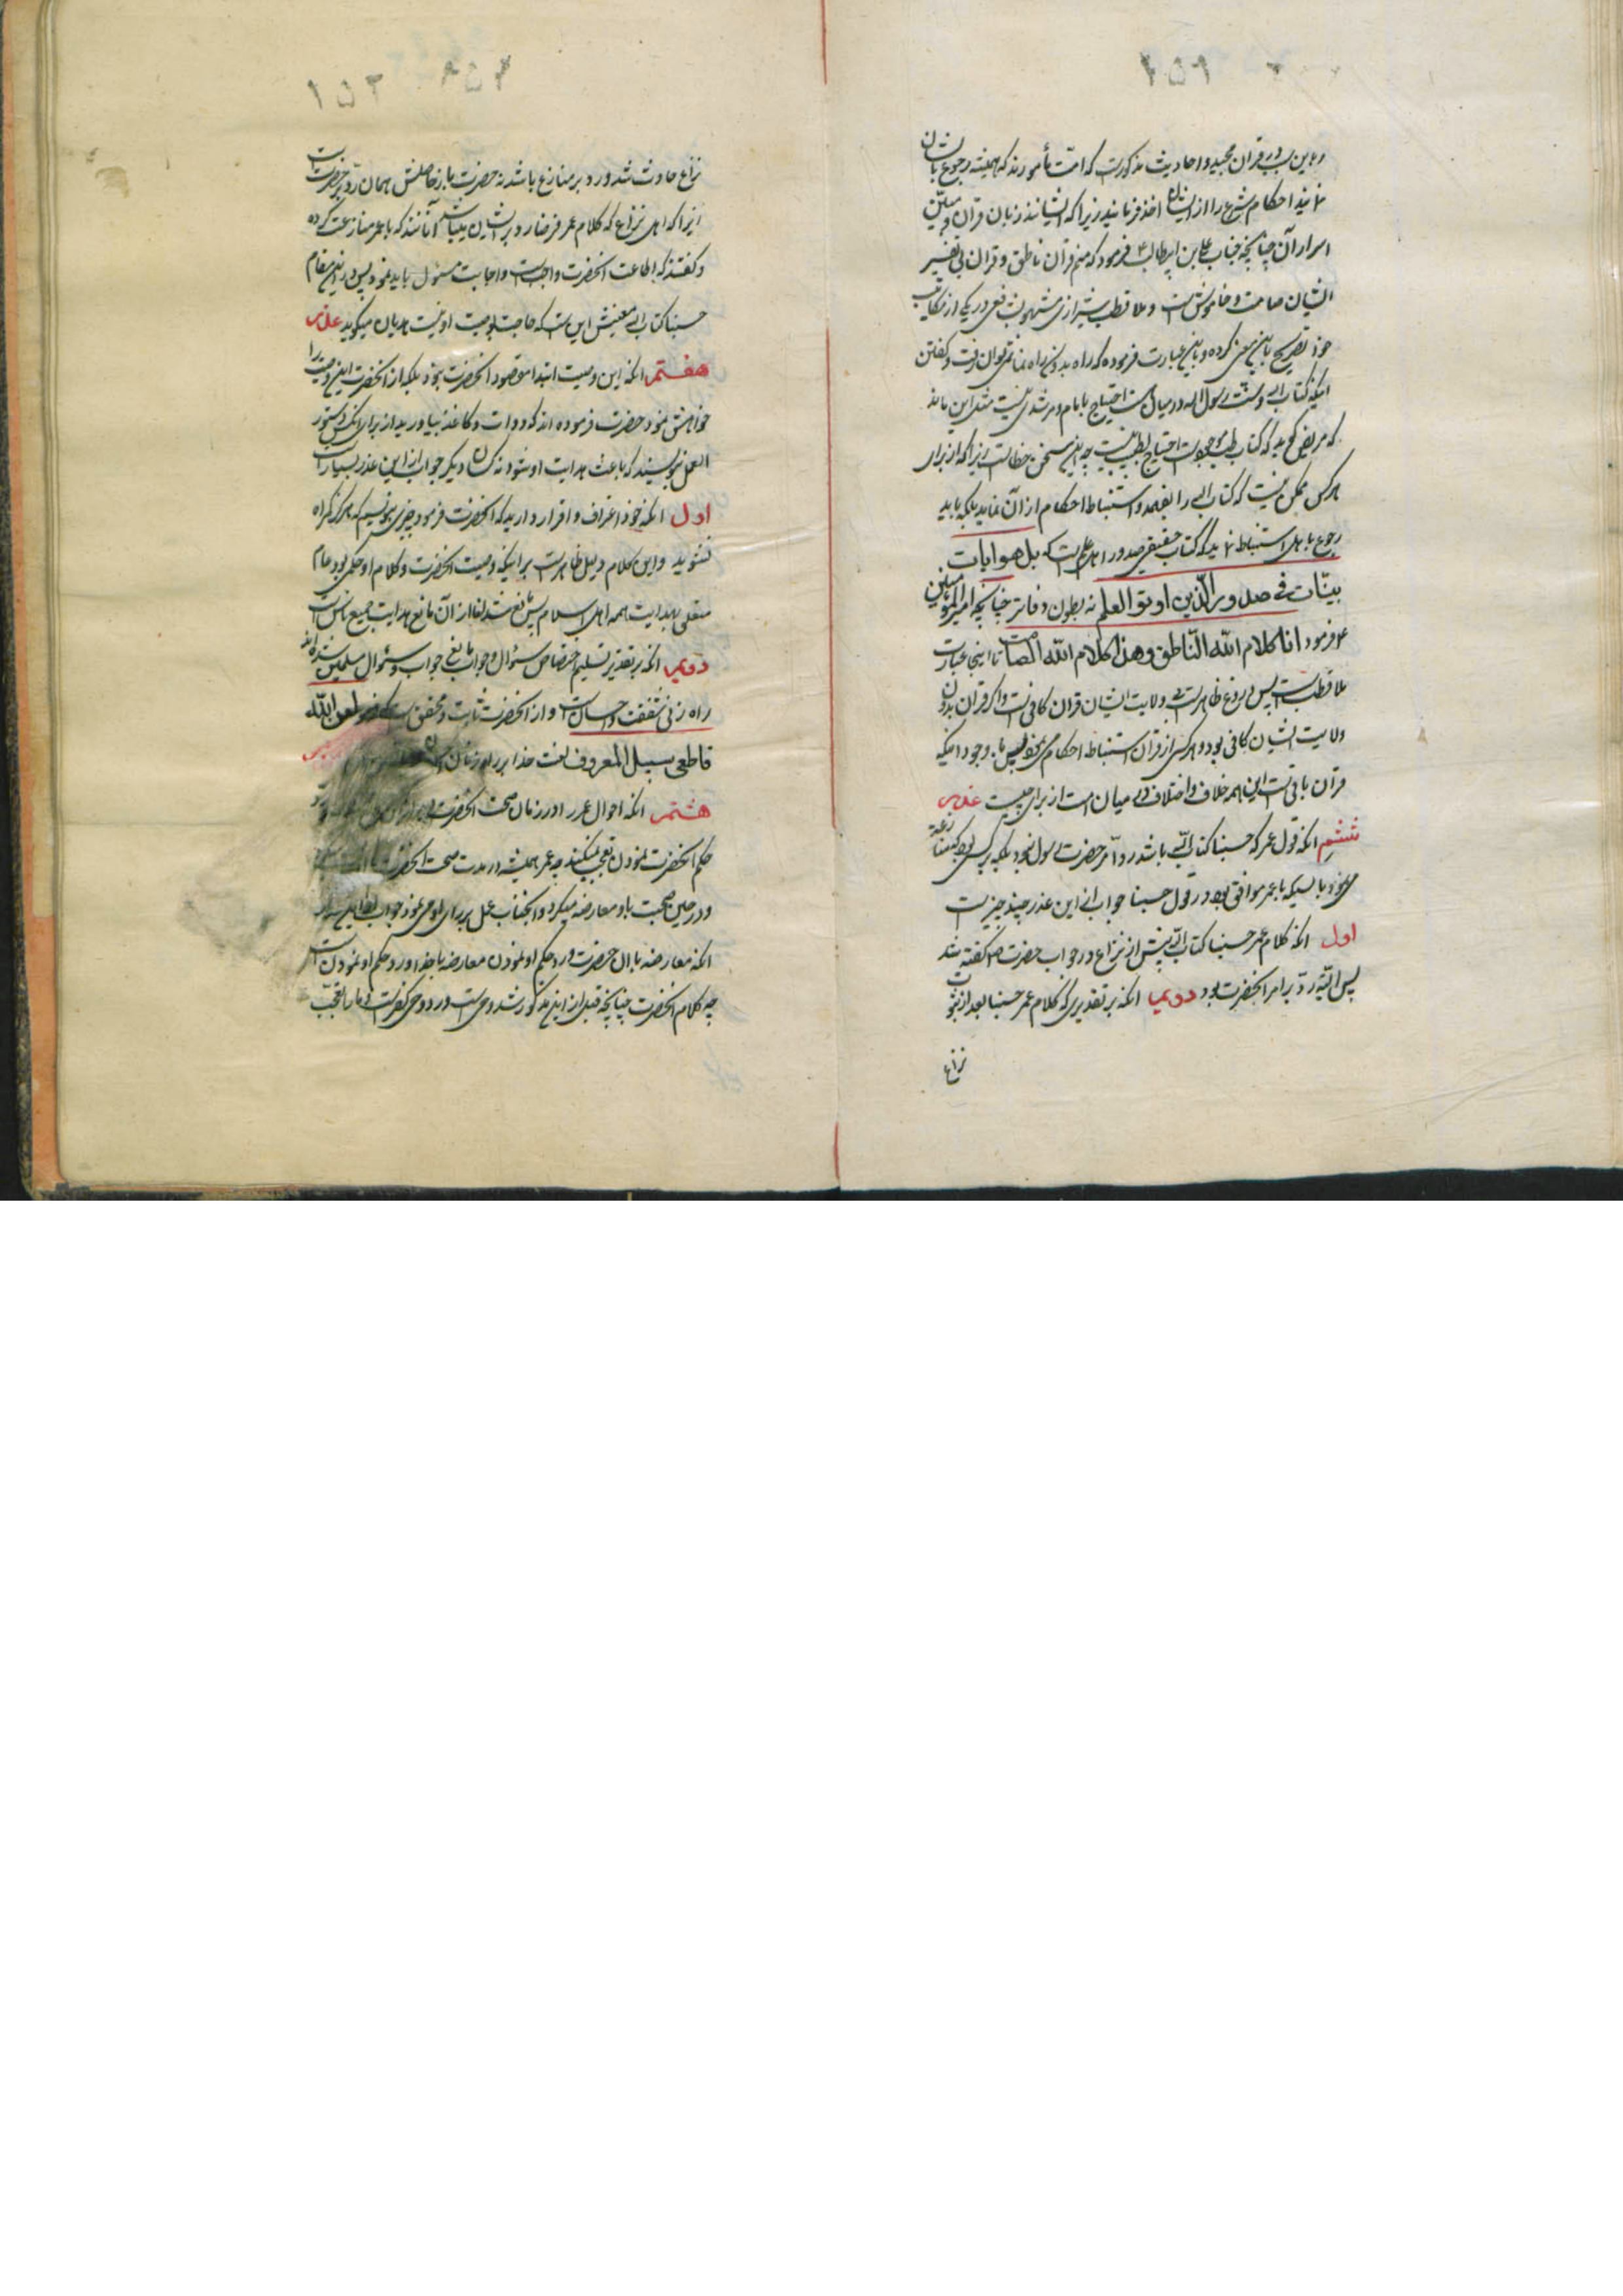 ۲۵۹
و این در قرآن مجید و احادیث مذکورست که امت مأمورند که همیشه رجوع بایشان
نمایند احکام شرع را از ایشان اخذ فرمایند زیرا که ایشانند زبان قرآن و مبیّن
اسرار آن چنانچه جناب علی بن ابیطالب ع فرمود که منم قرآن ناطق و قرآن بی تفسیر
ایشان صامت و خاموش است و ملا قطب شیرازی شافعی در یکی از مکاتیب
خود تصریح باین معنی کرده و باین عبارت فرموده که راه بدون راه نما نمیتوان رفت و گفتن
اینکه کتاب الله و سنت رسول الله در میان است احتیاج بامام و مرشدی نیست مثل این ماند
که مریض گوید که کتاب طب موجودست احتیاج بطبیب نیست چه این سخن خطاست زیرا که از برای
هر کس ممکن نیست که کتاب الله را بفهمد و استنباط احکام از آن نماید بلکه باید
رجوع باهل استنباط نماید که کتاب حقیقی صدور اهل علم است که بل هو ایات
بیّنات فی صدور الّذین اوتو العلم نه بطون دفاتر چنانچه امیر المؤمنین
ع فرمود انا کلام الله النّاطق و هذا کلام الله الصّامت تا اینجا عبارت
ملا قطب است پس دروغ ظاهرست بی ولایت ایشان قرآن کافی نیست و اگر قرآن بدون
ولایت ایشان کافی بود و هر کس از قرآن استنباط احکام می نمود پس با وجود اینکه
قرآن باقی است این همه خلاف و اختلاف در میان امت از برای چیست عذر
ششم انکه قول عمر که حسبنا کتاب الله باشد رد امر حضرت رسول نبود بلکه بر کسی بود که منازعه
می نمود با کسیکه با عمر موافق بود در قول حسبنا جواب از این عذر چند چیز است
اول انکه کلام عمر حسبنا کتاب الله پیش از نزاع در جواب حضرت ص گفته شد
پس البته ردّ بر امر انحضرت بود دویم انکه بر تقدیری که کلام عمر حسبنا بعد از
نزاع
۱۵۲
نزاع حادث شد و رد بر منازع باشد نه حضرت باز حاصلش همان ردّ بر حضرت است
زیرا که اهل نزاع که کلام عمر فرضا رد بر ایشان باشد آنانند که با عمر منازعت کرده
و گفتند که اطاعت انحضرت واجب است و اجابت مسئول باید نمود پس در این مقام
حسبنا کتاب الله معنیش این است که حاجت بوصیت او نیست هذیان میگوید عذر
هفتم انکه این وصیت ابتدا مقصود انحضرت نبود بلکه از انحضرت این وصیت را
خواهش نمود حضرت فرموده اند که دوات و کاغذ بیاورید از برای انکس دستور
العمل بنویسند که باعث هدایت او شود نه دیگر جواب از این عذر بسیار است
اول انکه خود اعتراف و اقرار دارید که انحضرت فرمود چیزی بنویسیم که هرگز گمراه
نشوید و این کلام دلیل ظاهرست بر اینکه وصیت انحضرت و کلام او حکمی بود عام
متعلق بهدایت همه اهل اسلام پس مانع شدن از آن مانع هدایت جمیع ناس است
دویم انکه بر تقدیر تسلیم اختصاص سؤال و جواب مانع جواب و سؤال مسلمین شدن
راه زنی شفقت و احسان است و از انحضرت ثابت و محقق است لعن الله
قاطعی سبیل المعروف لعنت خدا بر راه زنان
هشتم انکه احوال عمر را در زمان صحت انحضرت
حکم انحضرت نمودن تعجب میکنند چه عمر همیشه در مدت صحت انحضرت
و در حین صحبت باو معارضه میکرد و انجناب عمل بر رای او می نمود جواب
انکه معارضه با ان حضرت و رد حکم او نمودن معارضه با خدا و رد حکم او نمودن است
چه کلام انحضرت چنانچه قبل از این مذکور شد وحی است و رد وحی کفر است